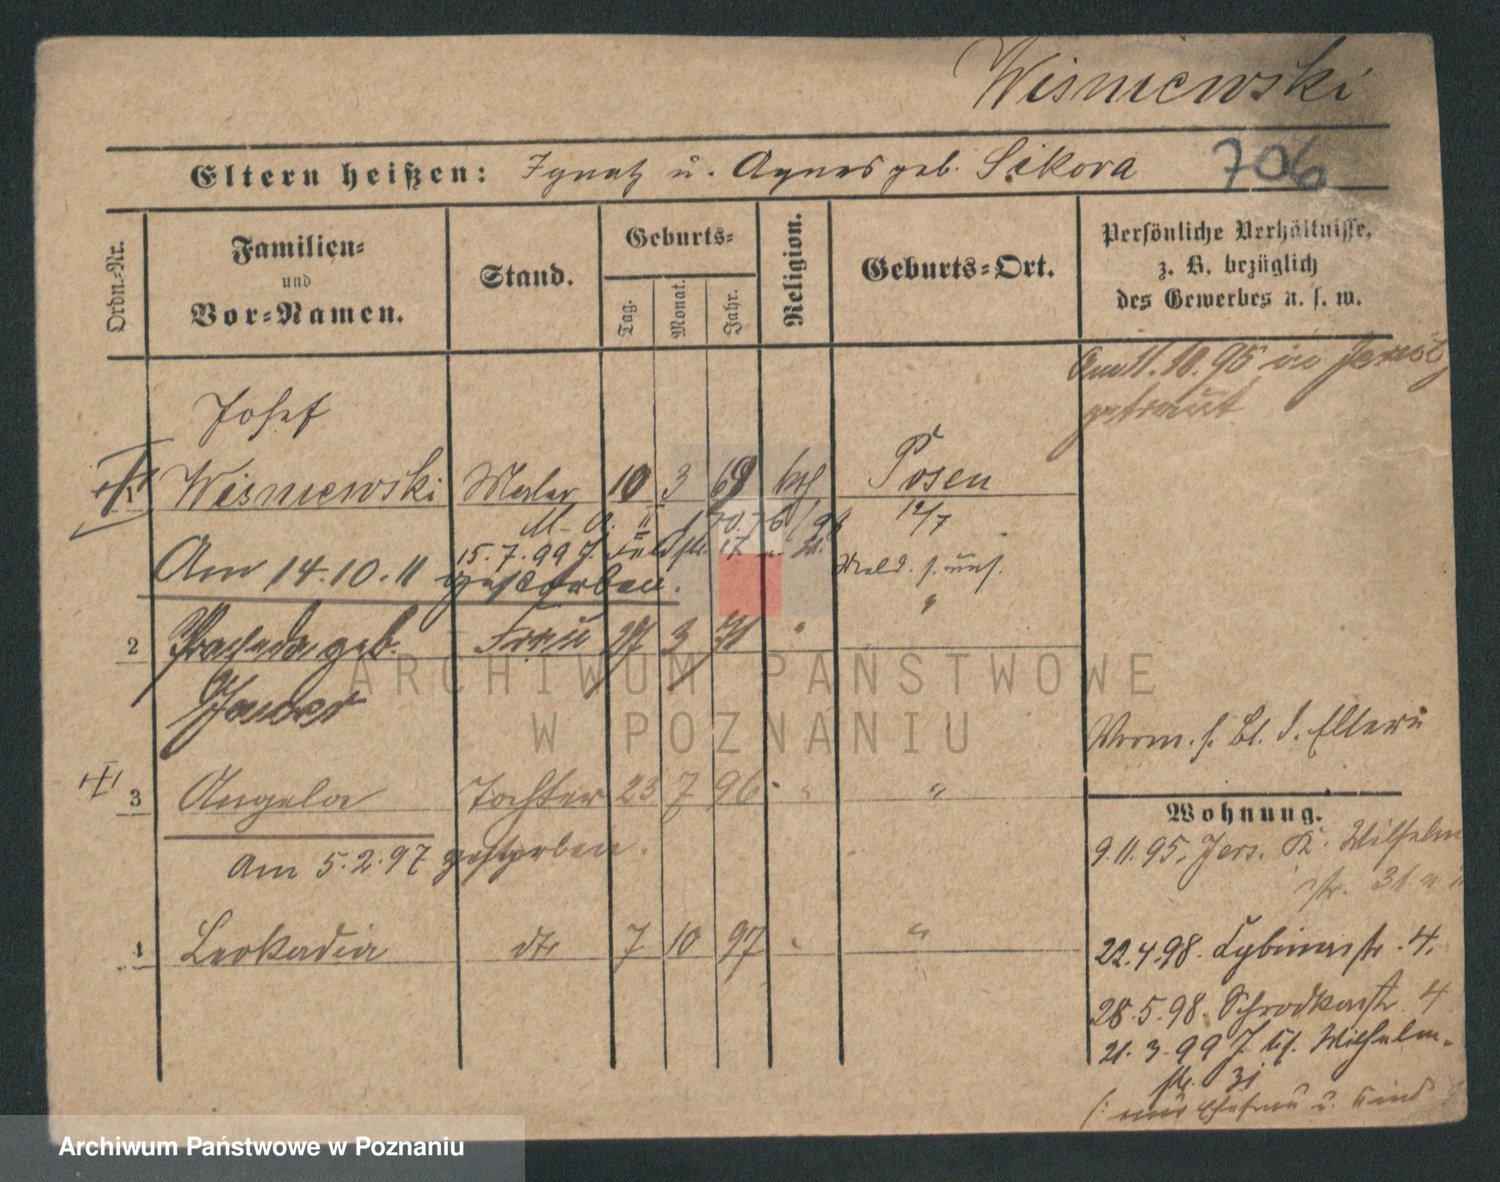 Wisniewski
Eltern heißen: Ignatz u. Agnes geb. Sikora 706
Ordn.-Nr.
Familien- und Vor-Namen.
Stand.
Geburts-
Tag.
Monat.
Jahr.
Religion.
Geburts-Ort.
Persönliche Verhältnisse,
z. B. bezüglich
des Gewerbes u. s. w.
Am 11.10.95 in
getraut
Josef
1 Wisniewski Maler 10 3 69 kth Posen
12/7
15.7.99 J.
Am 14.10.11 gestorben.
Meld. s. "
2 Praxeda geb. Frau 27 3 71 "
Vorm. s. Bl. d. Eltern
3 Angela Tochter 23 7 96 " "
Am 5.2.97 gestorben.
Wohnung.
9.11.95. Jers. K. Wilhelm
str. 31
4 Leokadia dto 7 10 97 " "
22.4.98. Lybinerstr. 4.
28.5.98. Schrodkastr. 4
21.3.99 J. Wilhelm-
str. 31
(: nur Ehefrau u. Kind
ARCHIWUM PAŃSTWOWE
W POZNANIU
Archiwum Państwowe w Poznaniu